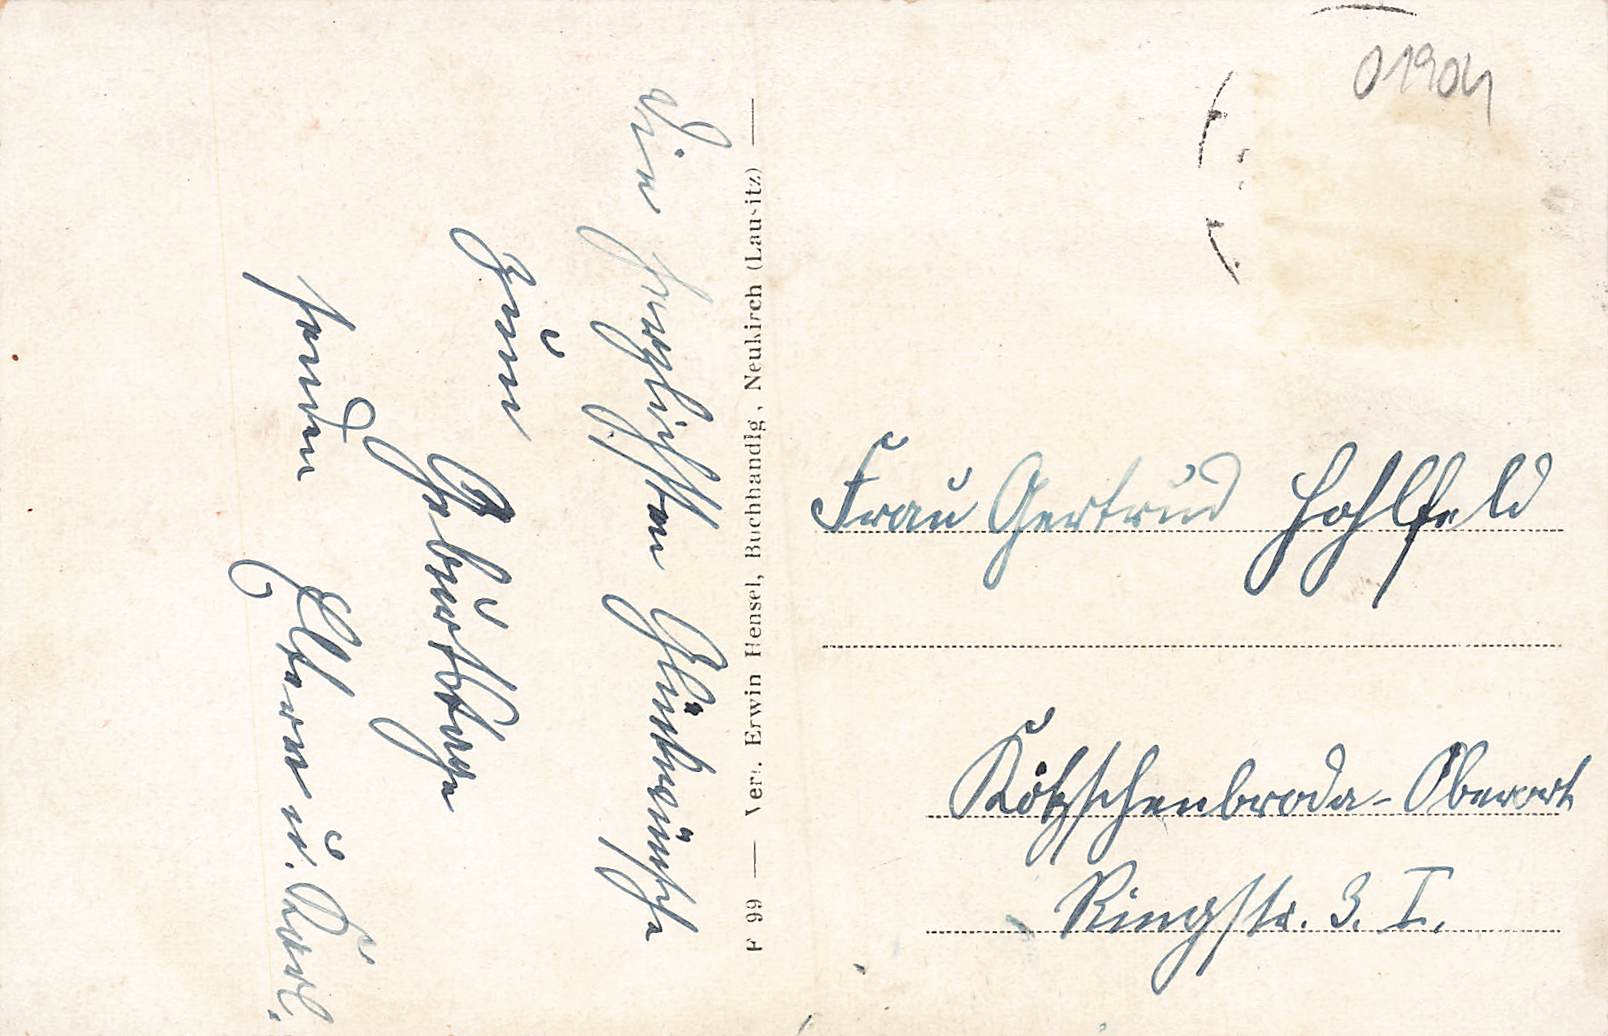 Die herzlichsten Glückwünsche
zum
Geburtstage
senden
Eltern u. Karl.
F 99 — Verl. Erwin Hensel, Buchhandlg, Neukirch (Lausitz) —
01904
Frau Gertrud Hohlfeld
Kötzschenbroda-Oberort
Ringstr. 3. I.